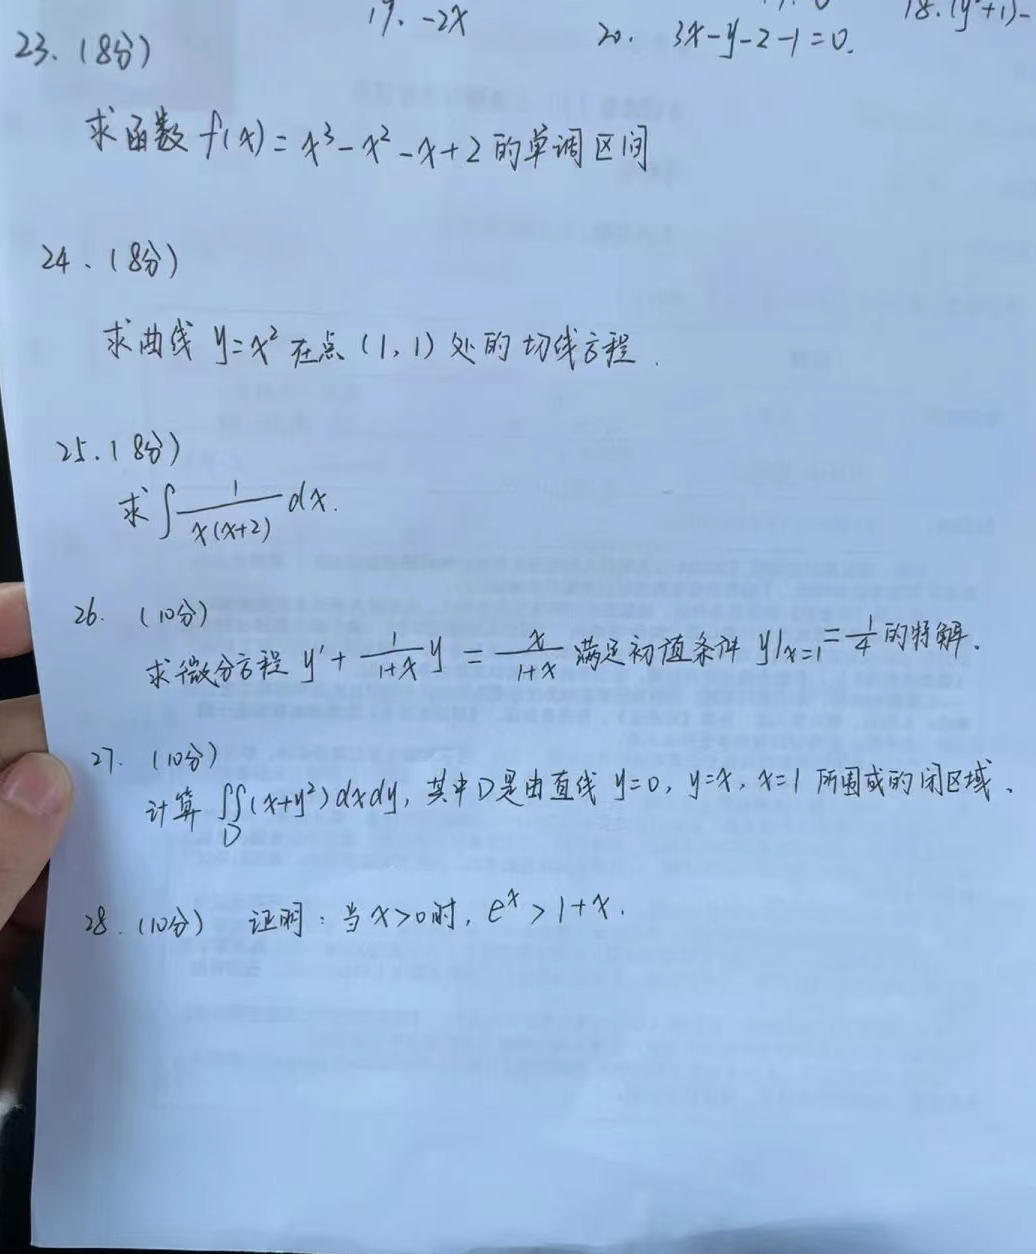 19. -2x
20. 3x-y-z-1=0.
18. (y²+1)-
23. (8分)
求函数 f(x)=x³-x²-x+2 的单调区间
24. (8分)
求曲线 y=x² 在点 (1,1) 处的切线方程.
25. (8分)
求 ∫ 1/(x(x+2)) dx.
26. (10分)
求微分方程 y′ + 1/(1+x) y = x/(1+x) 满足初值条件 y|x=1 = 1/4 的特解.
27. (10分)
计算 ∬D (x+y²)dxdy, 其中D是由直线 y=0, y=x, x=1 所围成的闭区域.
28. (10分) 证明: 当 x>0 时, eˣ > 1+x.